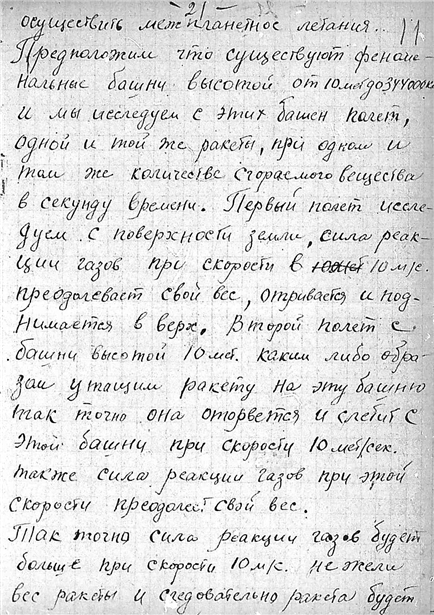 - 21 -
осуществить межпланетное летания.. 11
Предположим что существуют феноме-
нальные башни высотой от 10 мет до 344000 км
и мы исследуем с этих башен полет,
одной и той же ракеты, при одном и
том же количестве сгораемого вещества
в секунду времени. Первый полет иссле-
дуем с поверхности земли, сила реак-
ции газов при скорости в 10 м/с.
преодолевает свой вес, отривается и под-
нимается в верх. Второй полет с
башни высотой 10 мет. каким либо обра-
зом утащим ракету на эту башню
так точно она оторвется и слетит с
этой башни при скорости 10 мет/сек.
также сила реакции газов при этой
скорости преодолеет свой вес.
Так точно сила реакции газов будет
больше при скорости 10 м/с. не жели
вес ракеты и следовательно ракета будет